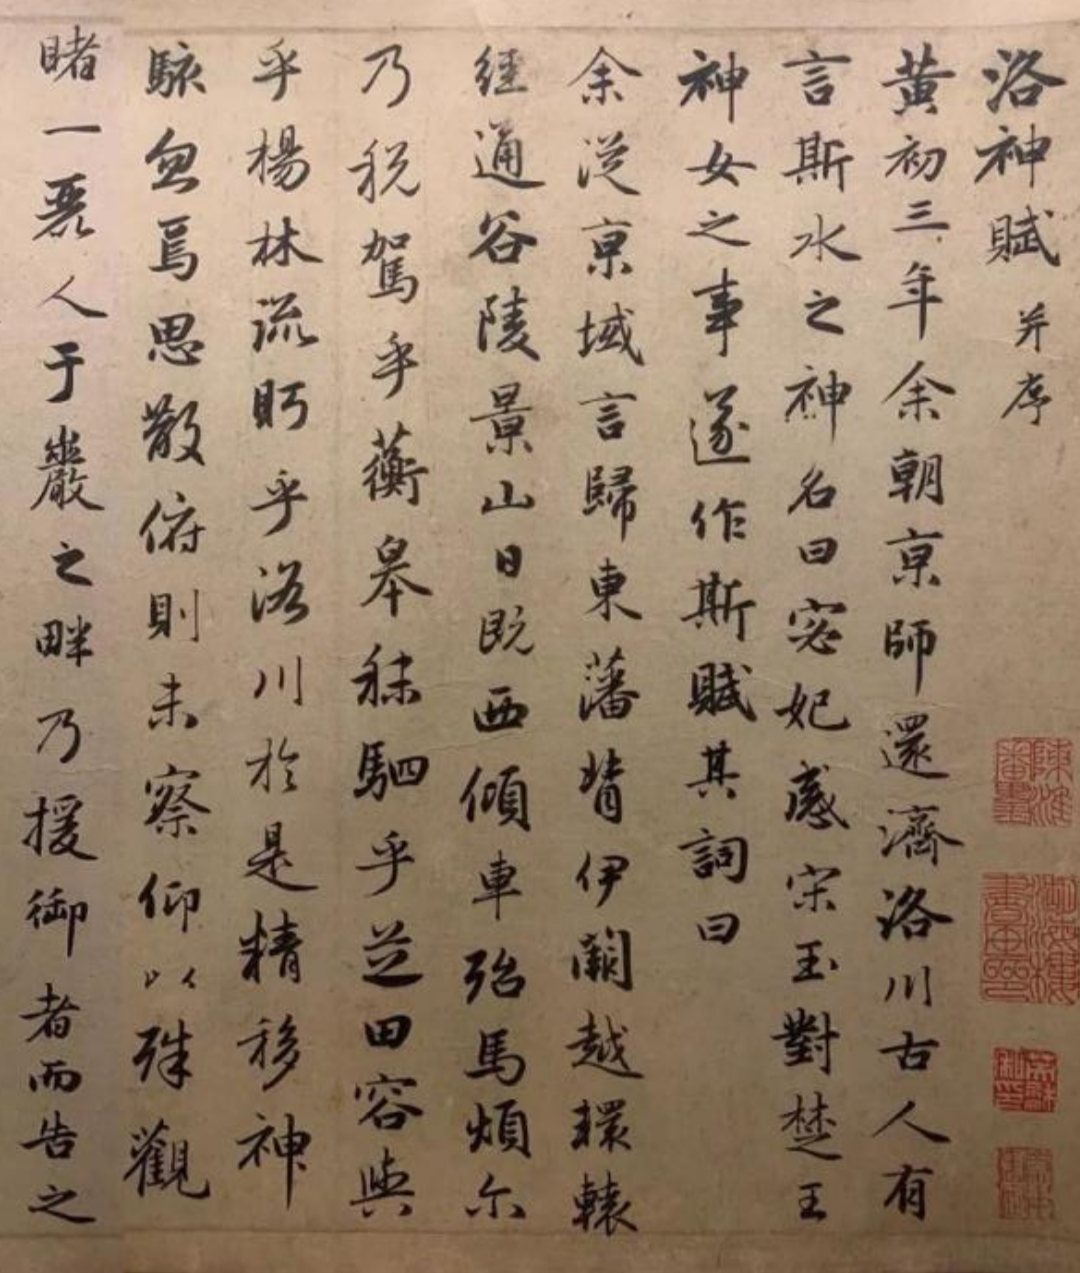 洛神賦 并序
黃初三年余朝亰師還濟洛川古人有
言斯水之神名曰宓妃感宋玉對楚王
神女之事遂作斯賦其詞曰
余從亰域言歸東藩背伊闕越轘轅
經通谷陵景山日既西傾車殆馬煩尔
乃税駕乎蘅皋秣駟乎芝田容與
乎楊林流眄乎洛川於是精移神
駭忽焉思散俯則未察仰以殊觀
睹一麗人于巖之畔乃援御者而告之